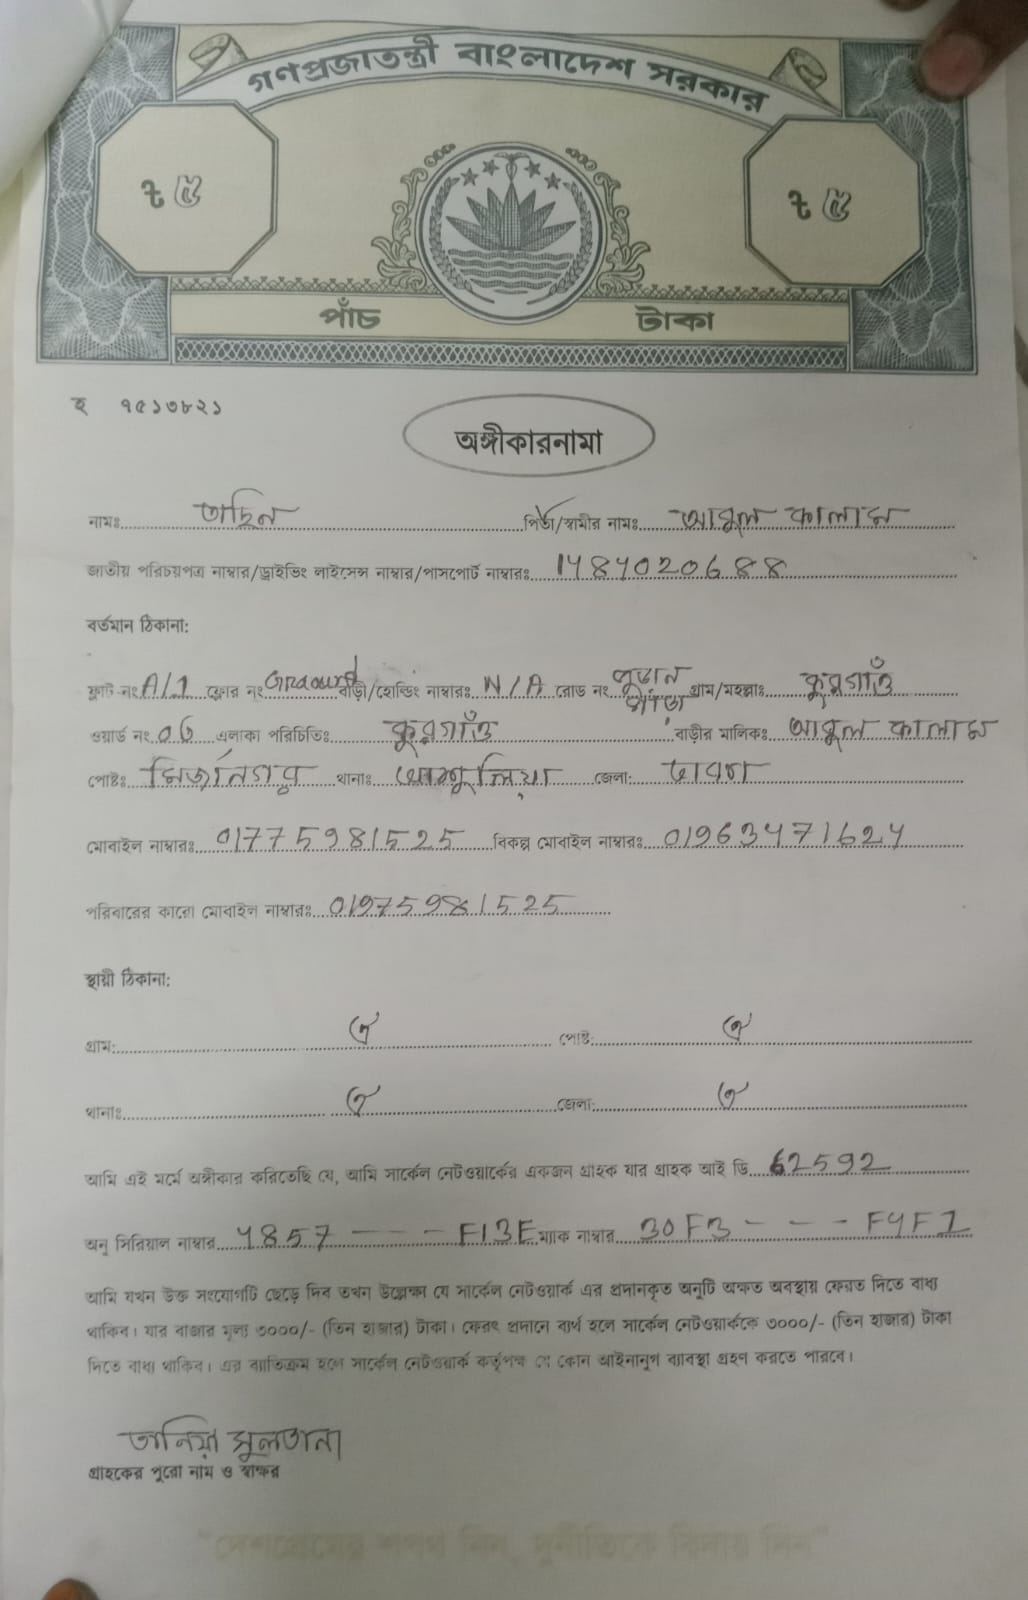 গণপ্রজাতন্ত্রী বাংলাদেশ সরকার
৳ ৫ ৳ ৫
পাঁচ টাকা
হ ৭৫১৩৮২১
অঙ্গীকারনামা
নামঃ তাছিন পিতা/স্বামীর নামঃ আবুল কালাম
জাতীয় পরিচয়পত্র নাম্বার/ড্রাইভিং লাইসেন্স নাম্বার/পাসপোর্ট নাম্বারঃ 1484020688
বর্তমান ঠিকানা:
ফ্লাট নং A/1 ফ্লোর নং Graound বাড়ী/হোল্ডিং নাম্বারঃ N/A রোড নং পুরান পাড়া গ্রাম/মহল্লাঃ কুরগাঁও
ওয়ার্ড নং 06 এলাকা পরিচিতিঃ কুরগাঁও বাড়ীর মালিকঃ আবুল কালাম
পোষ্টঃ মির্জানগর থানাঃ আশুলিয়া জেলা: ঢাকা
মোবাইল নাম্বারঃ 01775981525 বিকল্প মোবাইল নাম্বারঃ 01963471624
পরিবারের কারো মোবাইল নাম্বারঃ 01975981525
স্থায়ী ঠিকানা:
গ্রাম: ঐ পোষ্ট: ঐ
থানাঃ ঐ জেলা: ঐ
আমি এই মর্মে অঙ্গীকার করিতেছি যে, আমি সার্কেল নেটওয়ার্কের একজন গ্রাহক যার গ্রাহক আই ডি 62592
অনু সিরিয়াল নাম্বার 4857 --- F13E ম্যাক নাম্বার 30F3 - - - F4F1
আমি যখন উক্ত সংযোগটি ছেড়ে দিব তখন উল্লেক্ষা যে সার্কেল নেটওয়ার্ক এর প্রদানকৃত অনুটি অক্ষত অবস্থায় ফেরত দিতে বাধ্য
থাকিব। যার বাজার মূল্য ৩০০০/- (তিন হাজার) টাকা। ফেরৎ প্রদানে ব্যর্থ হলে সার্কেল নেটওয়ার্ককে ৩০০০/- (তিন হাজার) টাকা
দিতে বাধ্য থাকিব। এর ব্যাতিক্রম হলে সার্কেল নেটওয়ার্ক কর্তৃপক্ষ যে কোন আইনানুগ ব্যাবস্থা গ্রহণ করতে পারবে।
তানিয়া সুলতানা
গ্রাহকের পুরো নাম ও স্বাক্ষর
"দেশপ্রেমের শপথ নিন, দুর্নীতিকে বিদায় দিন"